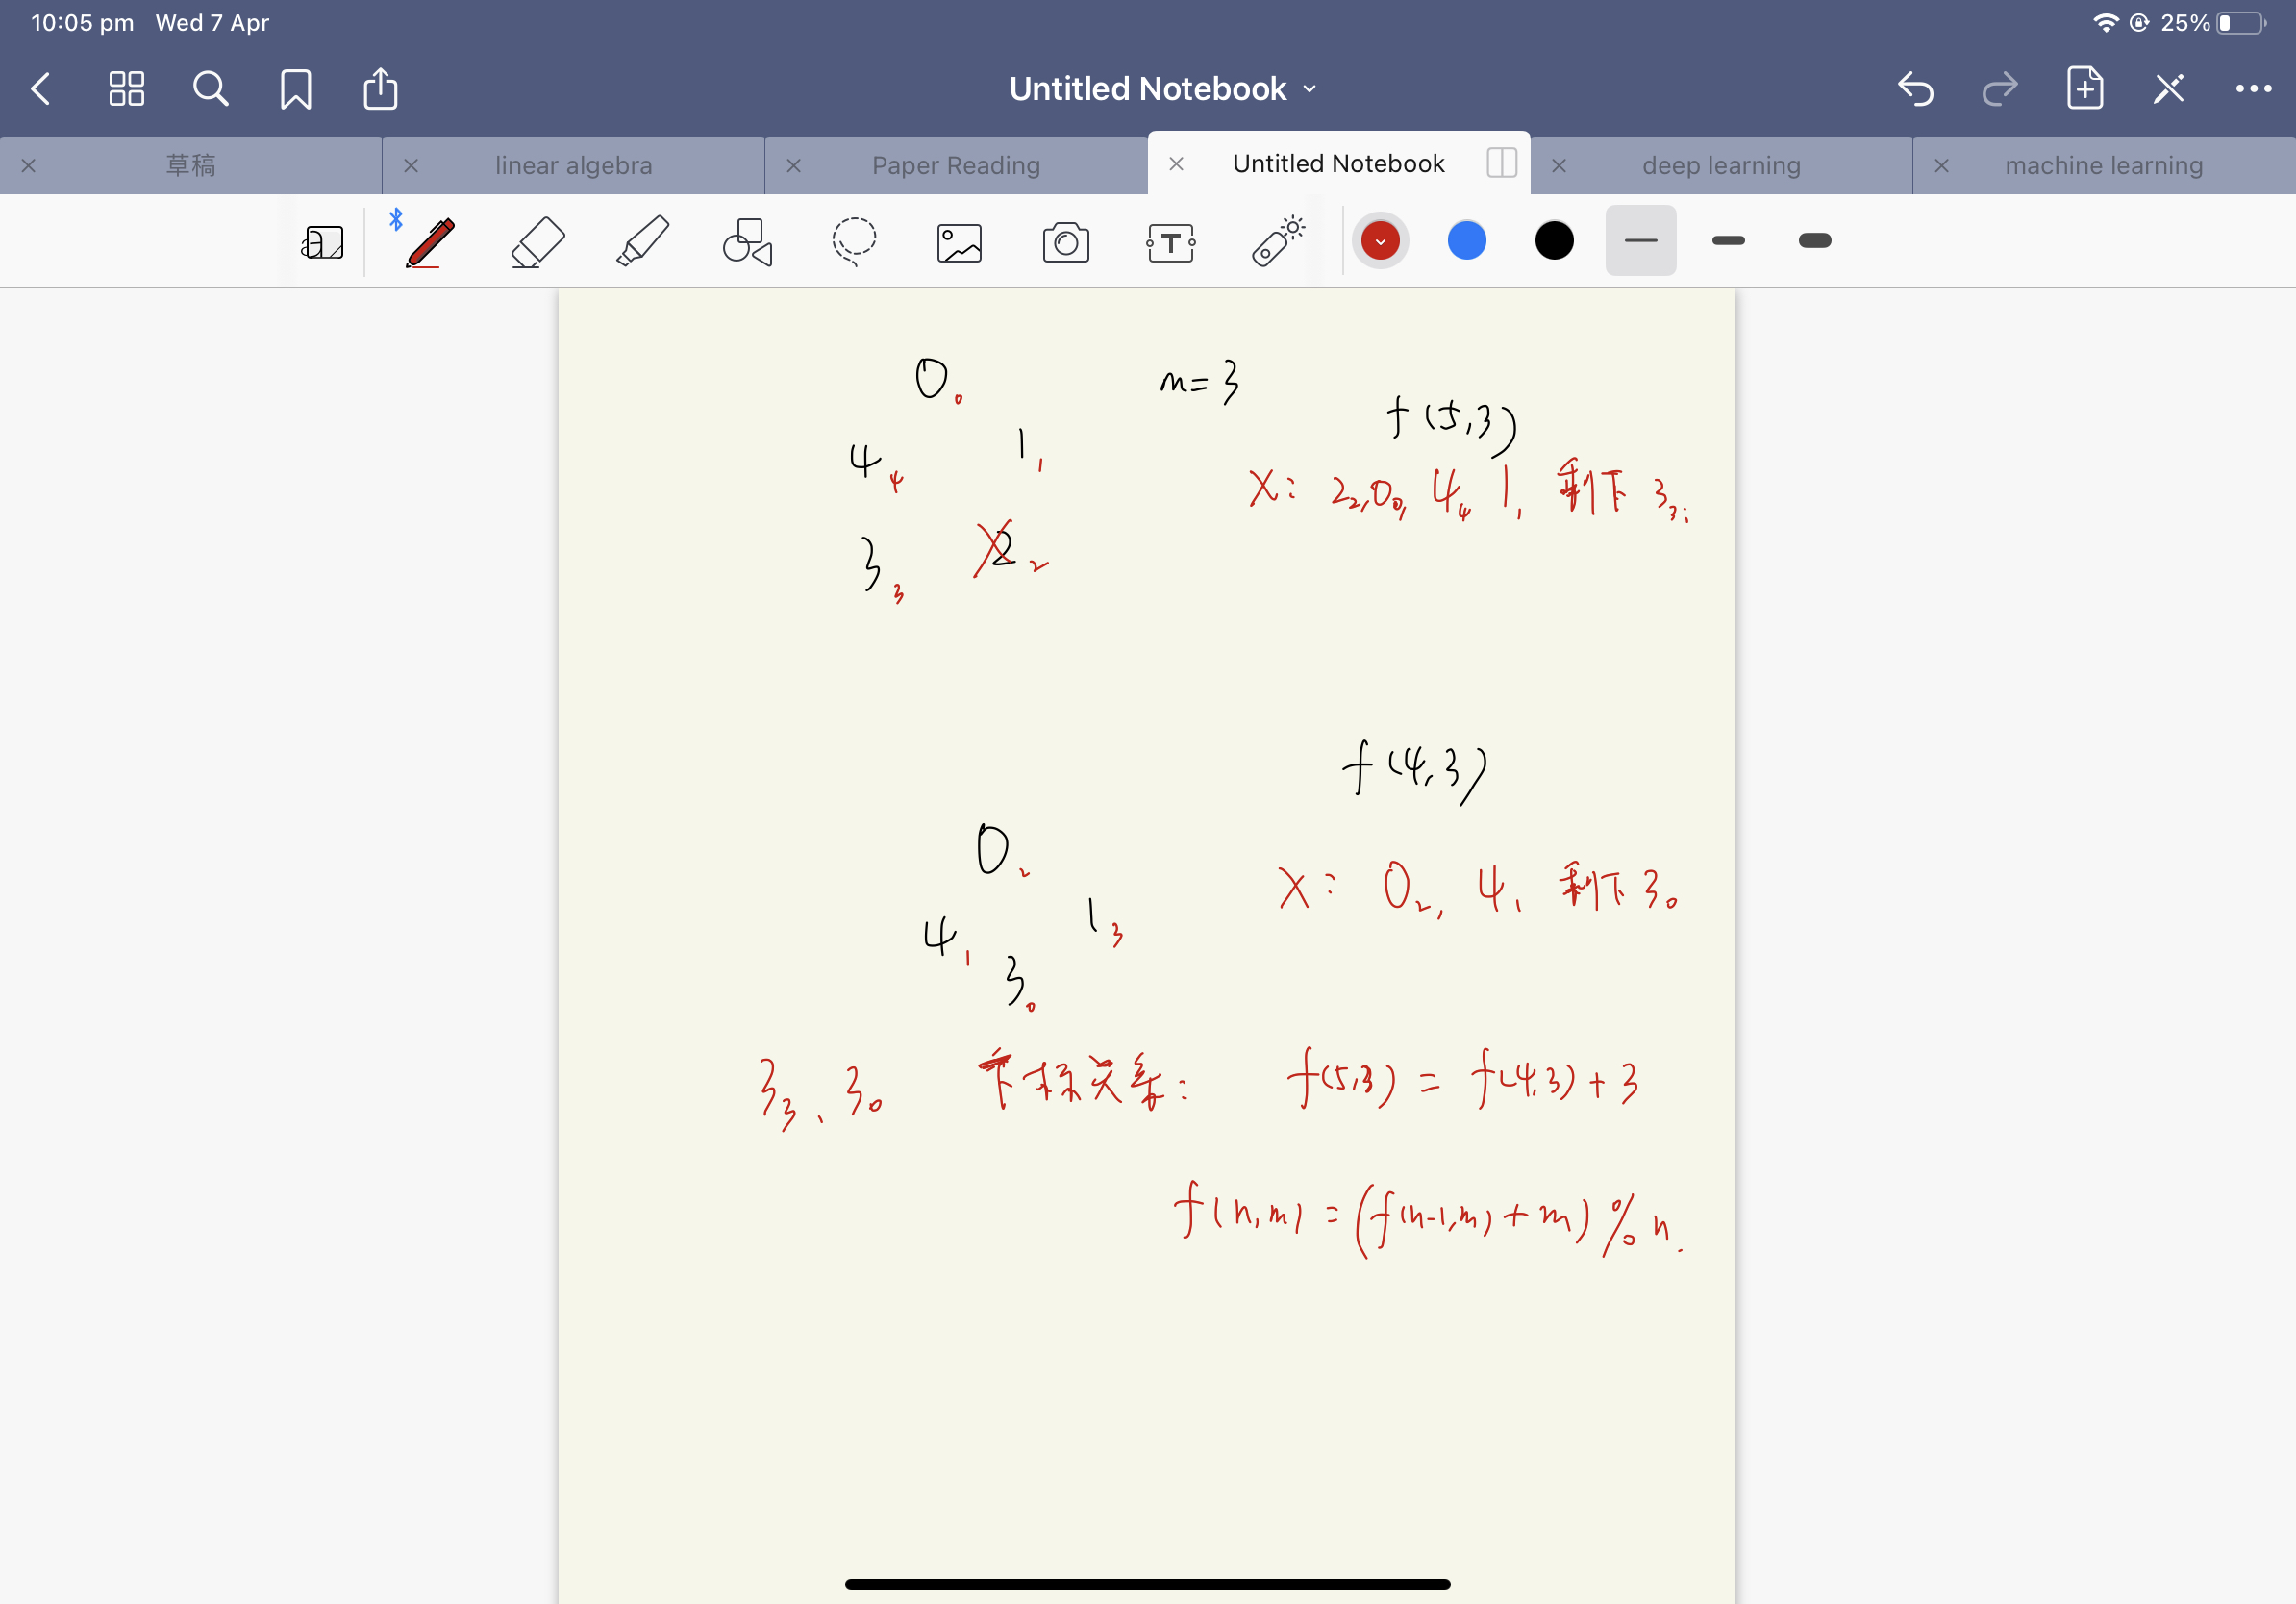 10:05 pm Wed 7 Apr 25%
Untitled Notebook
草稿 linear algebra Paper Reading Untitled Notebook deep learning machine learning
T
0₀ m=3
f(5,3)
4₄ 1₁
X: 2₂,0₀,4₄ 1, 剩下 3₃;
3₃ 2₂
f(4,3)
0₂
X: 0₂, 4₁ 剩下3₀
4₁ 1₃
3₀
3₃、3₀ 下标关系: f(5,3) = f(4,3)+3
f(n,m) = (f(n-1,m)+m)%n.